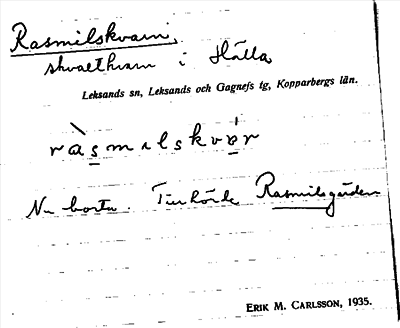 Rasmilskvarn,
skvaltkvarn i Hälla
Leksands sn, Leksands och Gagnefs tg, Kopparbergs län.
ràsmɩlskvɒ́r
Nu borta. Tillhörde Rasmilsgården
ERIK M. CARLSSON, 1935.